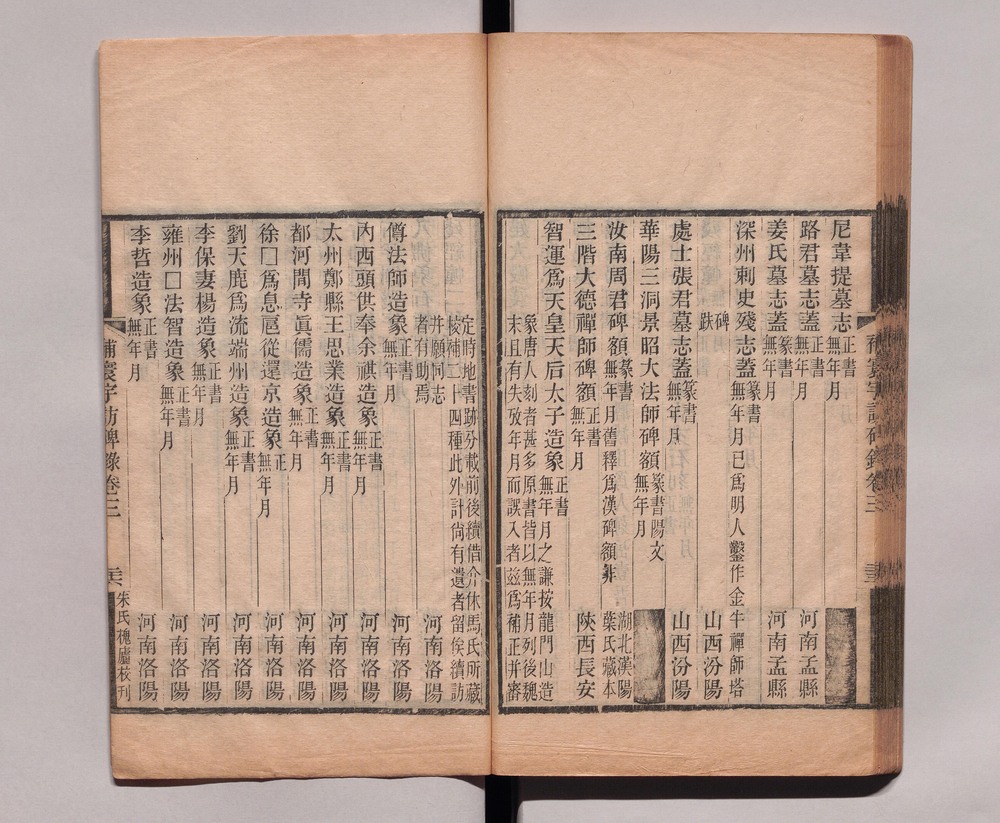 尼韋提墓志 正書 無年月
路君墓志蓋 正書 無年月 河南孟縣
姜氏墓志蓋 篆書 無年月 河南孟縣
深州刺史殘志蓋 篆書 無年月已爲明人鑿作金牛禪師塔
碑趺 山西汾陽
處士張君墓志蓋 篆書 無年月 山西汾陽
華陽三洞景昭大法師碑額 篆書陽文 無年月
汝南周君碑額 篆書 無年月舊釋爲漢碑額非 湖北漢陽 葉氏藏本
三階大德禪師碑額 正書 無年月 陝西長安
智運爲天皇天后太子造象 正書 無年月之謙按龍門山造
象唐人刻者甚多原書皆以無年月列後魏
末且有失攷年月而誤入者茲爲補正并審
定時地書跡分載前後續借介休馬氏所藏
校補二十四種此外計尚有遺者留俟續訪
并願同志
者有助焉 河南洛陽
傅法師造象 正書 無年月 河南洛陽
內西頭供奉余祺造象 正書 無年月 河南洛陽
太州鄭縣王思業造象 正書 無年月 河南洛陽
都河間寺眞儒造象 正書 無年月 河南洛陽
徐囗爲息扈從還京造象 正書 無年月 河南洛陽
劉天鹿爲流端州造象 正書 無年月 河南洛陽
李保妻楊造象 正書 無年月 河南洛陽
雍州囗法智造象 正書 無年月 河南洛陽
李哲造象 正書 無年月 河南洛陽
補寰宇訪碑錄卷三
朱氏槐廬校刊